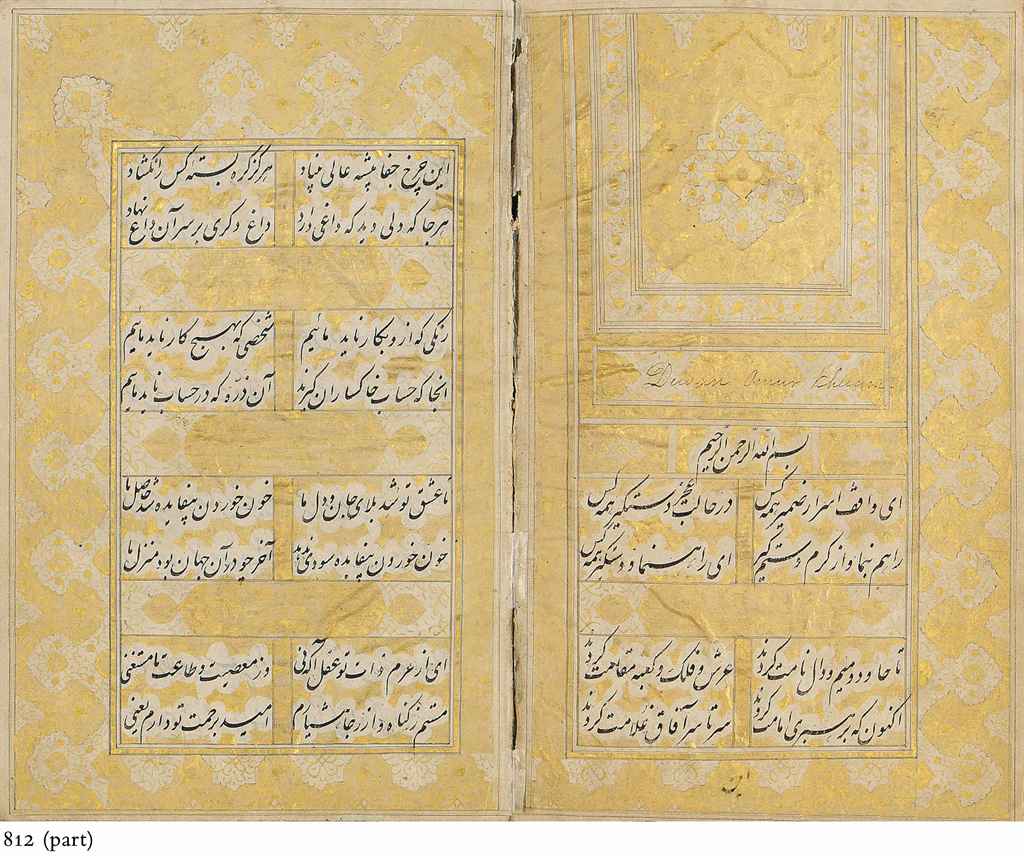 Dewan Ameer
بسم الله الرحمن الرحیم
ای واقف اسرار ضمیر همه کس در حالت عجز دستگیر همه کس
راهم بنما و از کرم دستم گیر ای راهنما و دستگیر همه کس
تا حا و دو میم و دال نامت کردند عرش و فلک و کعبه مقامت کردند
اکنون که برهبری امامت کردند سر تا سر آفاق غلامت کردند
این
این چرخ جفا پیشه عالی بنیاد هرگز گره بسته کس را نگشاد
هر جا که دلی دید که داغی دارد داغ دکری بر سر آن داغ نهاد
رنکی که ازو بکار ناید مائیم شخصی که بهیچ کار ناید مائیم
انجا که حساب خاکساران گیرند آن ذره که در حساب ناید مائیم
تا عشق تو شد بلای جان و دل ما خون خوردن بیفایده شد حاصل ما
خون خوردن بیفایده سودی ندهد آخر چو در آن جهان بود منزل ما
ای از ذات تو عقل وز معصیت و طاعت ما مستغنی
مستم ز گناه و از رجا هشیارم امید برحمت تو دارم یعنی
812 (part)